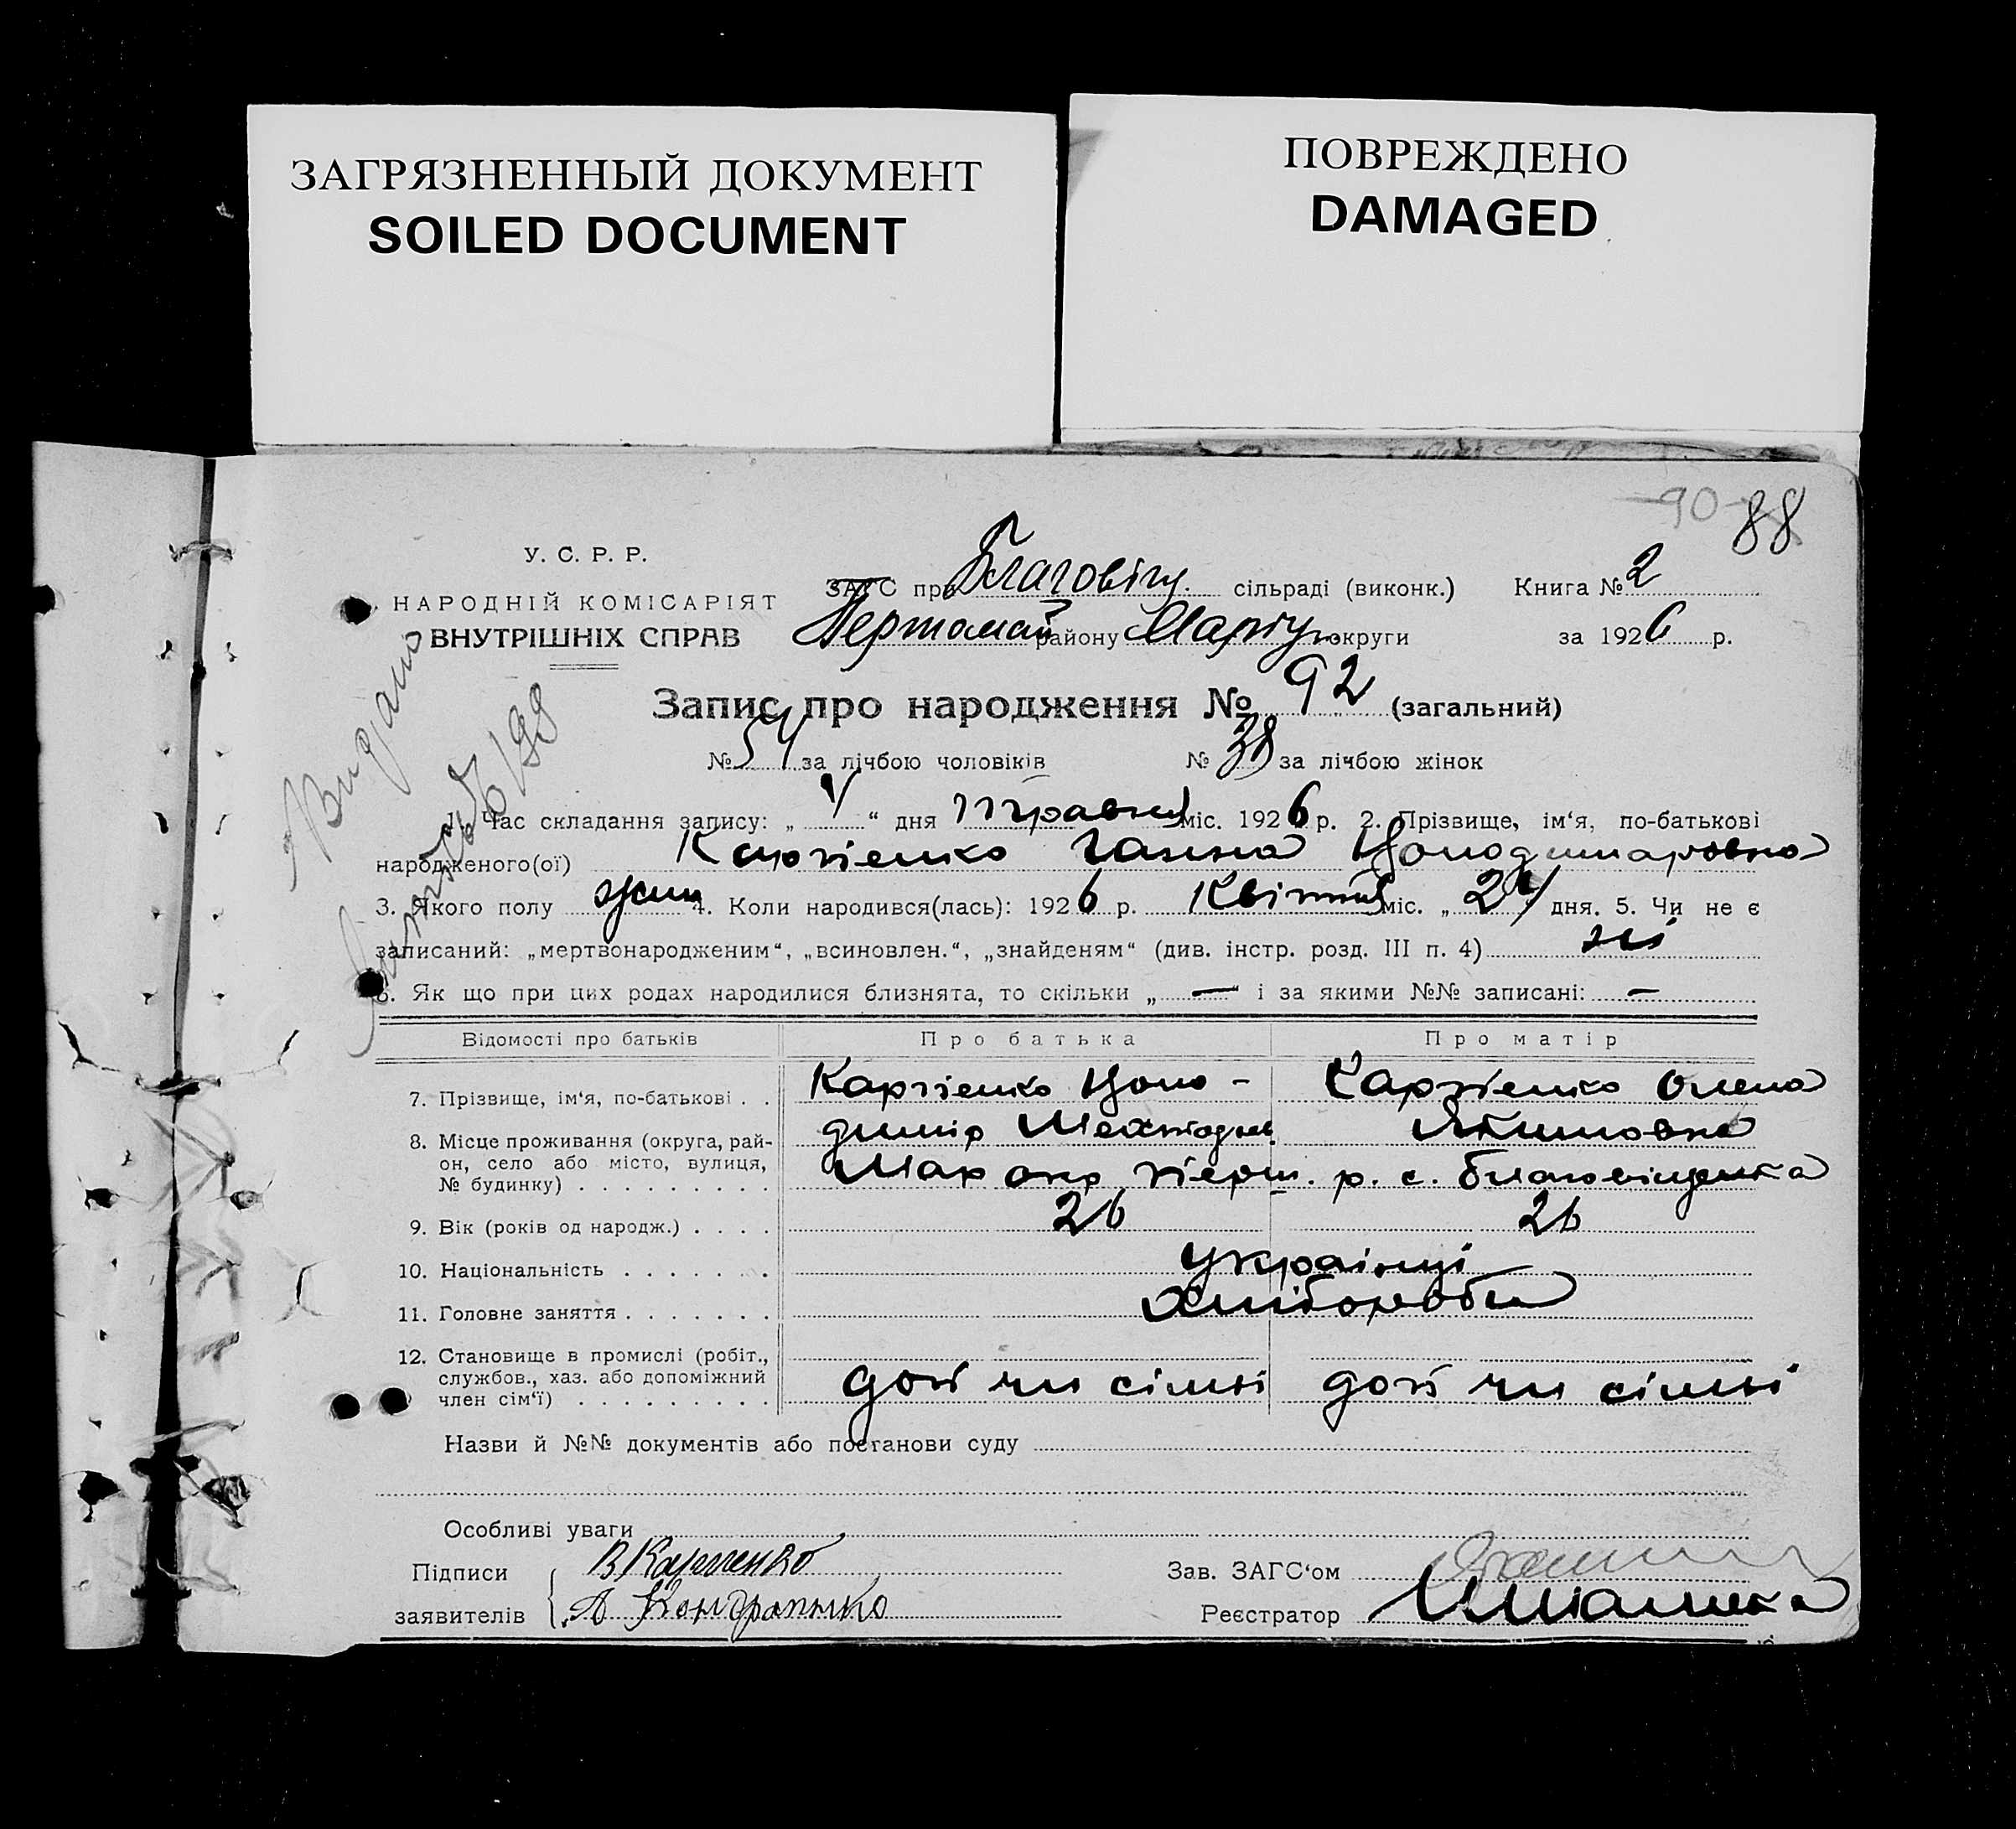 ЗАГРЯЗНЕННЫЙ ДОКУМЕНТ
SOILED DOCUMENT
ПОВРЕЖДЕНО
DAMAGED
90 88
У. С. Р. Р.
НАРОДНІЙ КОМІСАРІЯТ
ВНУТРІШНІХ СПРАВ
ЗАГС при Благовіщ. сільраді (виконк.) Книга № 2
району Маріу. округи за 1926 р.
Запис про народження № 92 (загальний)
№ 54 за лічбою чоловіків № 38 за лічбою жінок
1. Час складання запису: „ 4 “ дня Травня міс. 1926 р. 2. Прізвище, ім‘я, по-батькові
народженого(ої) Ганна
3. Якого полу жін 4. Коли народився(лась): 1926 р. Квітня міс. „ 24 дня. 5. Чи не є
записаний: „мертвонародженим“, „всиновлен.“, „знайденям“ (див. інстр. розд. III п. 4) ні
6. Як що при цих родах народилися близнята, то скільки „ — “ і за якими №№ записані: —
Відомості про батьків Про батька Про матір
7. Прізвище, ім‘я, по-батькові . . Карпенко Воло- Карпенко Олена
димір
8. Місце проживання (округа, рай-
он, село або місто, вулиця,
№ будинку) . . . . . . . . . Мар окр перш. р. с. благовіщенка
9. Вік (років од народж.) . . . . 26 26
10. Національність . . . . . . . українці
11. Головне заняття . . . . . . . хлібороби
12. Становище в промислі (робіт.,
службов., хаз. або допоміжний
член сім‘ї) . . . . . . . . . доп чл сімьі доп чл сімьі
Назви й №№ документів або постанови суду
Особливі уваги
Підписи В Карпенко Зав. ЗАГС‘ом
заявителів Реєстратор